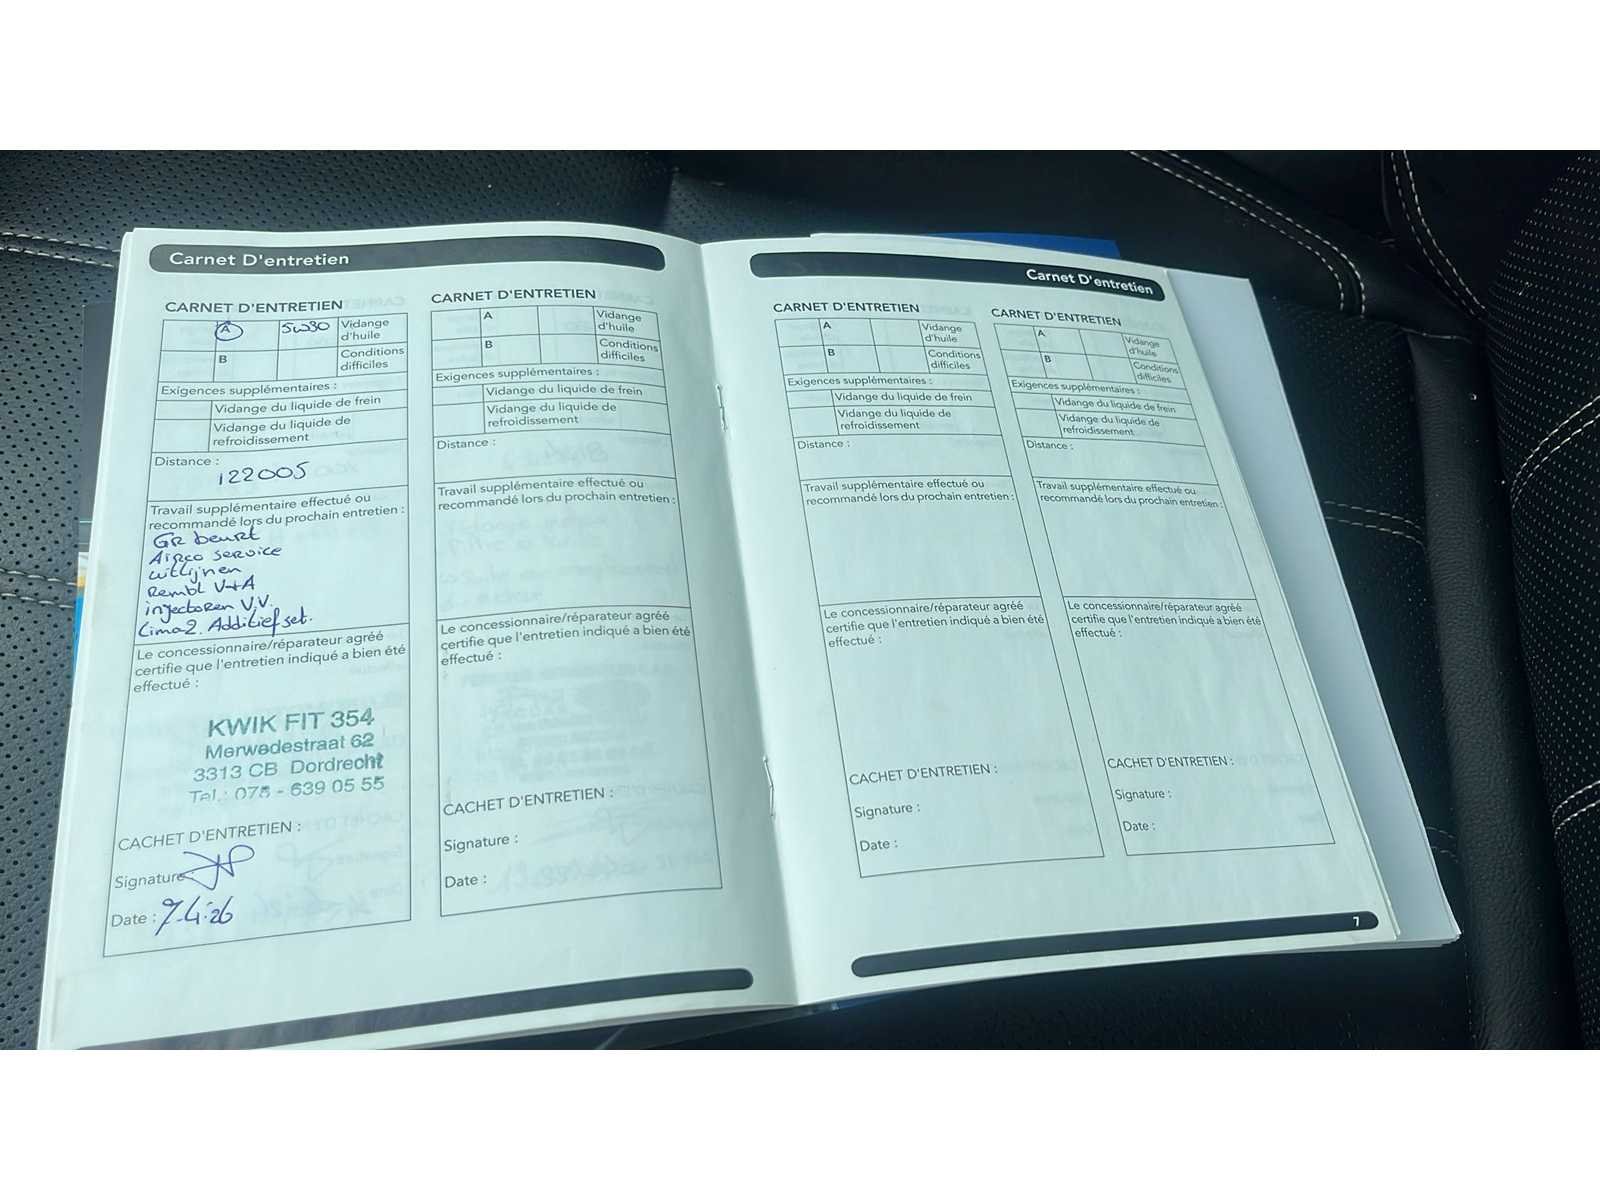 Carnet D'entretien
CARNET D'ENTRETIEN
A 5W30 Vidange
d'huile
B Conditions
difficiles
Exigences supplémentaires :
Vidange du liquide de frein
Vidange du liquide de
refroidissement
Distance :
122005
Travail supplémentaire effectué ou
recommandé lors du prochain entretien :
GR beurt
Airco service
uitlijnen
Rembl V+A
injectoren V.V.
Lima2. Additief set.
Le concessionnaire/réparateur agréé
certifie que l'entretien indiqué a bien été
effectué :
KWIK FIT 354
Merwedestraat 62
3313 CB Dordrecht
Tel.: 078 - 639 05 55
CACHET D'ENTRETIEN :
Signature
Date : 7-4-26
CARNET D'ENTRETIEN
A Vidange
d'huile
B Conditions
difficiles
Exigences supplémentaires :
Vidange du liquide de frein
Vidange du liquide de
refroidissement
Distance :
Travail supplémentaire effectué ou
recommandé lors du prochain entretien :
Le concessionnaire/réparateur agréé
certifie que l'entretien indiqué a bien été
effectué :
CACHET D'ENTRETIEN :
Signature :
Date :
Carnet D'entretien
CARNET D'ENTRETIEN
A Vidange
d'huile
B Conditions
difficiles
Exigences supplémentaires :
Vidange du liquide de frein
Vidange du liquide de
refroidissement
Distance :
Travail supplémentaire effectué ou
recommandé lors du prochain entretien :
Le concessionnaire/réparateur agréé
certifie que l'entretien indiqué a bien été
effectué :
CACHET D'ENTRETIEN :
Signature :
Date :
CARNET D'ENTRETIEN
A Vidange
d'huile
B Conditions
difficiles
Exigences supplémentaires :
Vidange du liquide de frein
Vidange du liquide de
refroidissement
Distance :
Travail supplémentaire effectué ou
recommandé lors du prochain entretien :
Le concessionnaire/réparateur agréé
certifie que l'entretien indiqué a bien été
effectué :
CACHET D'ENTRETIEN :
Signature :
Date :
7